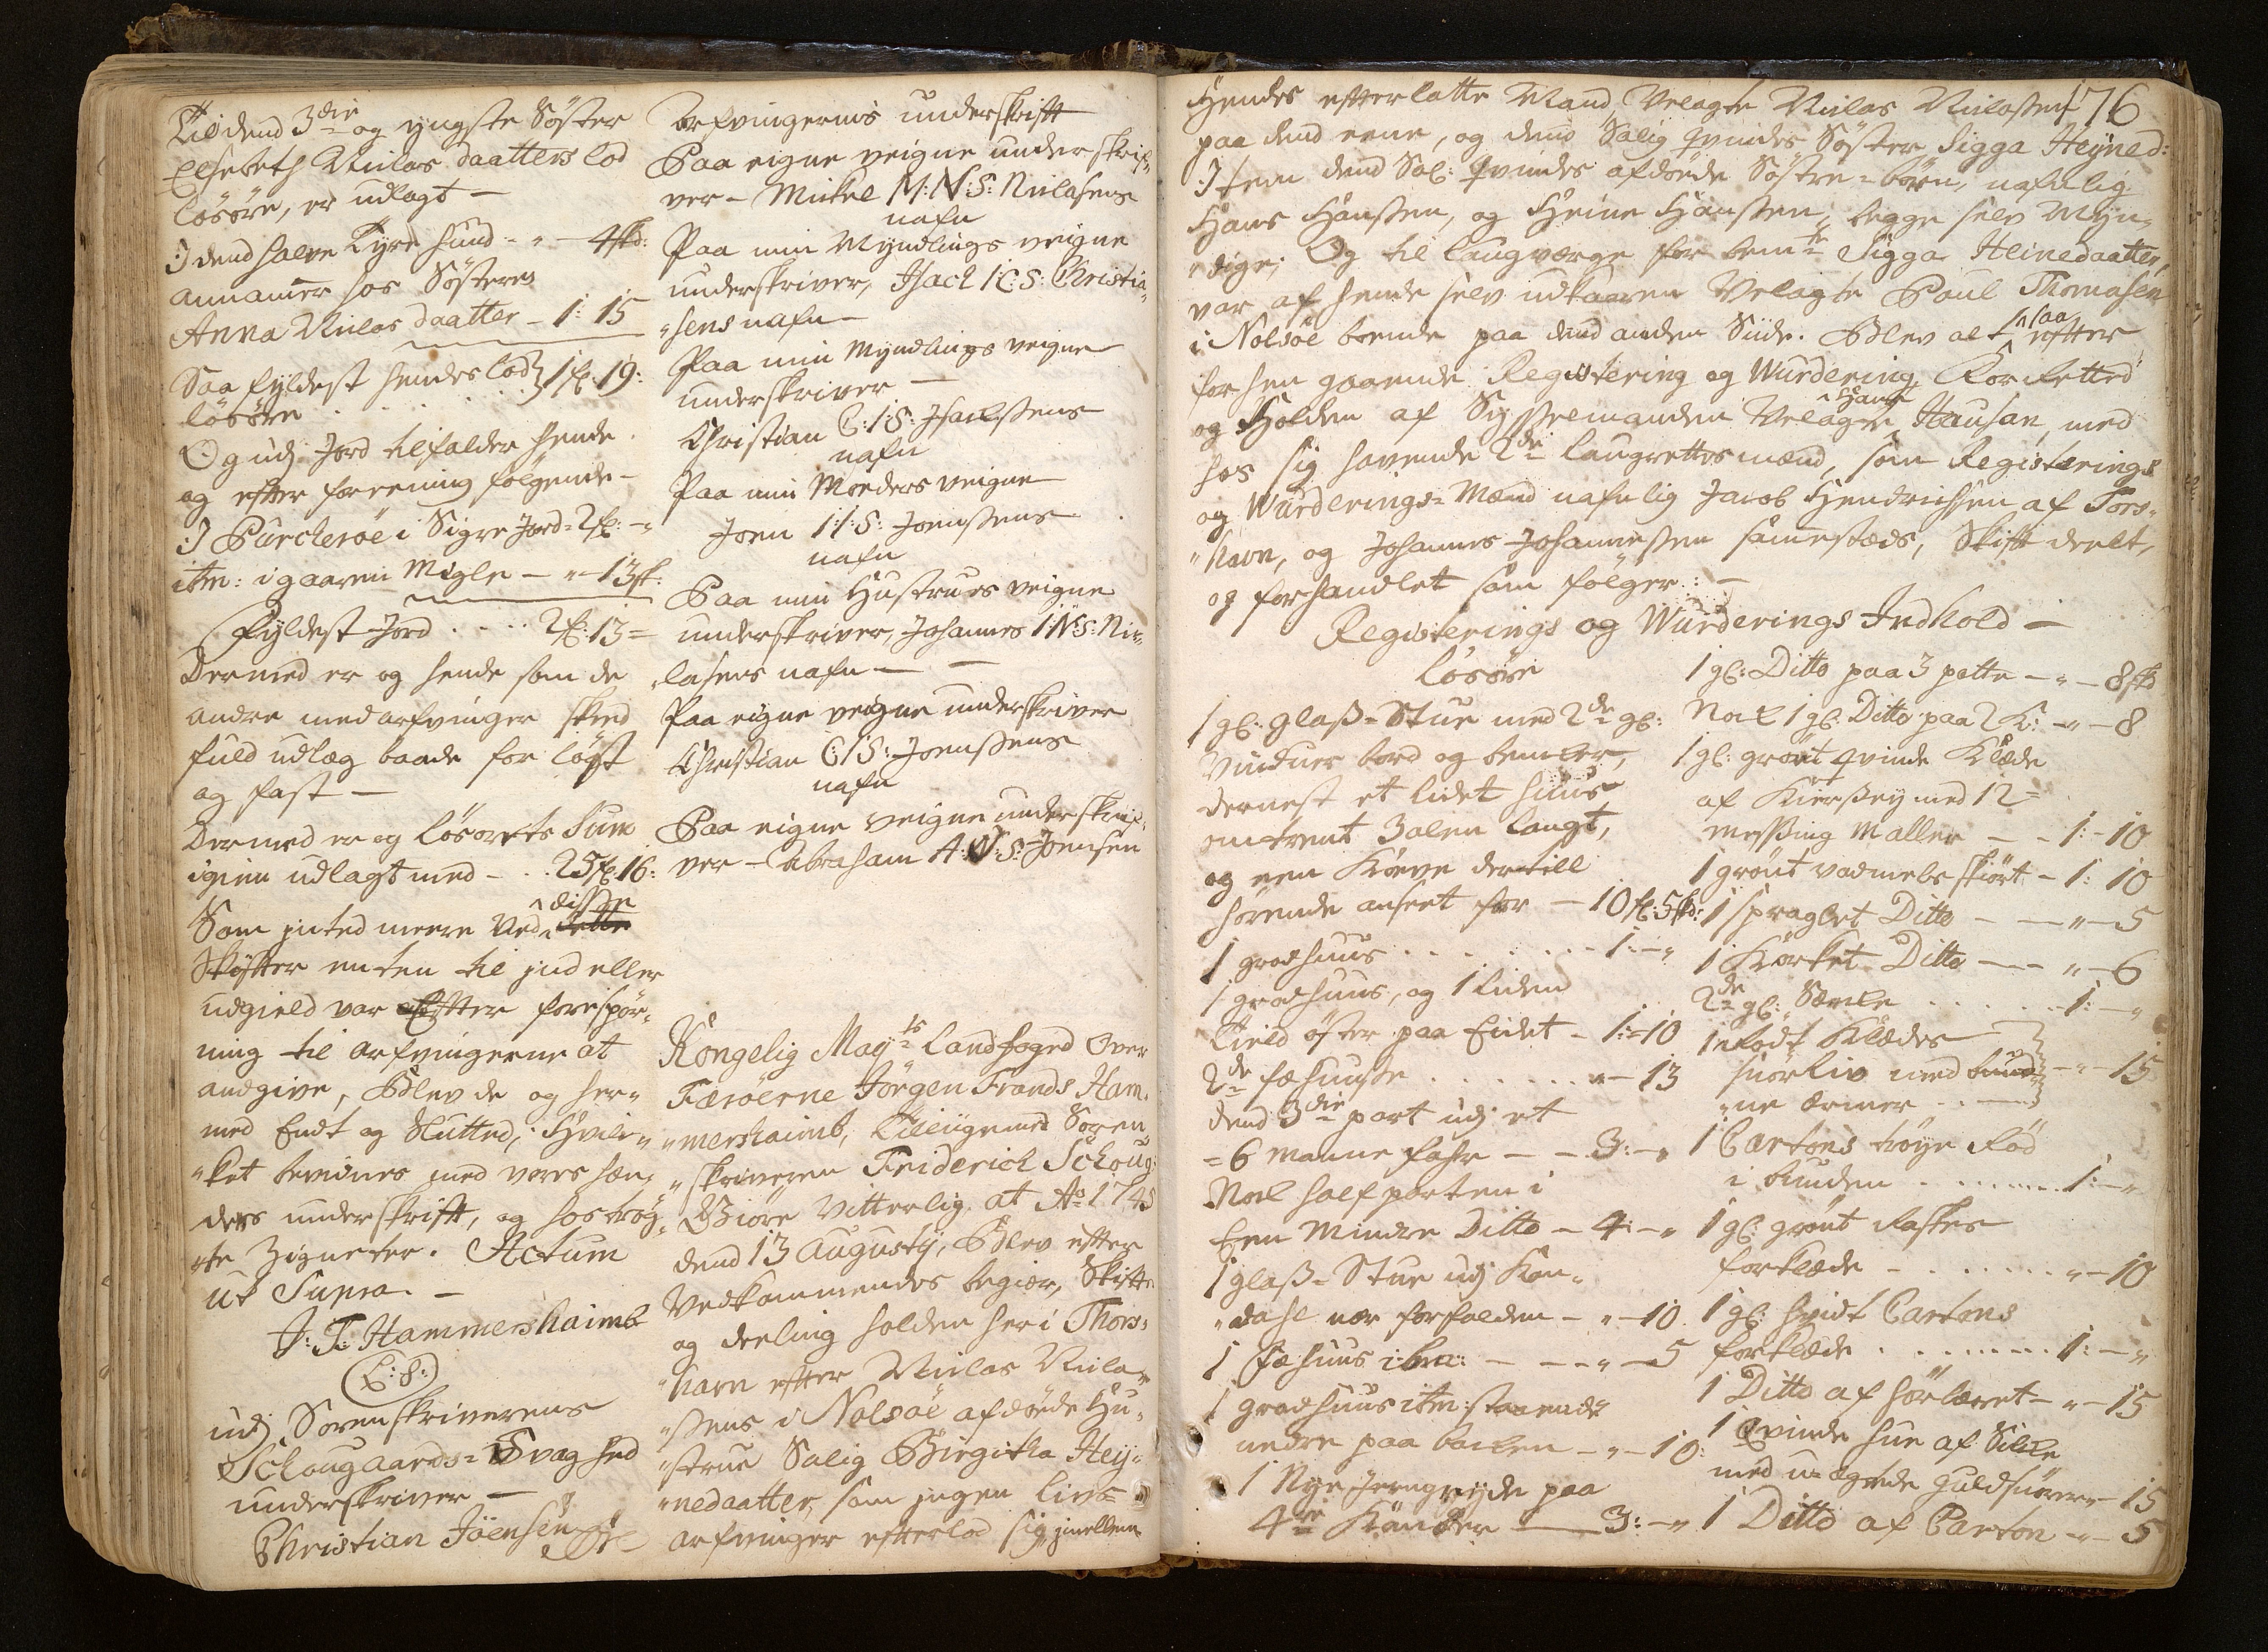 Till dend 3die og yngste Söster
Elsebeth Niclas daatters lod
lösöre, er udlagt -
I dend halve Tyre hund - " - 4 sk:
annamer hos Söstern
Anna Niclas daatter - 1: 15
Saa fyldest hendes lod
lösöre . . . . . 1 : 19:
Og udj Jord tilfalder hende
og efter foreening fölgende -
I Purcheröe i Sigre Jord - 2 : - "
itm: i gaaren Migle - " - 13 sk:
Fyldest Jord . . . . 2 : 13 =
Dermed er og hende som de
andre medarfvinger skeed
fuld udlæg baade for löst
og fast -
Dermed er og lösörets Sum
igien udlagt med - . . 25 : 16:
Som inted meere Ved disse dette
Skifter enten til ind eller
udgield var efter forespör-
ning til arfvingerne at
andgive, Blev de og her-
med Endt og Slutted, Hvil-
"ket bevidnes med vores hæn-
ders underskrift, og hoströg-
"te Zigneter. Actum
Ut Supra. -
J: F: Hammershaimb
(L: S:)
udj Sorenskriverens
Schougaards = Svaghed
underskriver -
Christian Jöensen
Arfvingernis underskrift
Paa eigne veigne underskrif-
ver - Mickel M: N: S: Niclasens
nafn
Paa min Myndlings veigne
underskriver, Isach I: C: S: Christia-
"sens nafn -
Paa min Myndlings veigne
underskriver -
Christian C: I: S: Isachsens
nafn
Paa min Moders veigne
Joen I: I: S: Joensens
nafn
Paa min Hustrues veigne
underskriver, Johannes I: N: S: Nic-
"lasens nafn - -
Paa eigne veigne underskriver
Christian C: I: S: Joensens
nafn
Paa eigne veigne underskrif-
ver - Abraham A: N: S: Joensen
Kongelig Mayts Landfoged Over
Færöerne Jörgen Frands Ham-
"mershaimb, Tilligemed Soren
"skriveren Friderich Schoug:
Giöre Vitterlig at Ao 1745
dend 13 Augusty, Blev efter
Vedkommendes begiær, Skifte
og deeling holden her i Thors-
"havn efter Niclas Nicla-
"sens i Nolsöe afdöede Hu-
"strue Salig Birgitha Hey-
"nedaatter, som ingen livs-
arfvinger efterlod sig, imellem
176
Hendes efterlatte Mand Velagte Niclas Niclasen
paa dend eene, og dend Salig qvindes Söster Sigga Heyned:
Item dend Sal: Qvindes afdöede Söstre = börn, nafnlig
Hans Hansen, og Heine Hansen, begge selv Myn-
"dige; Og til laugværge for bemte Sigga Heinedaatter,
var af hende selv udkaaren Velagte Poul Thomasen
i Nolsöe boende paa dend anden Siide. Blev alt saa efter
forhen gaaende Registering og Wurdering Forretted
og Holden af Sysselmanden Velagte Hans Hansen, med
hos sig havende 2de laugrettesmænd, som Registerings
og Wurderings = Mænd nafnlig Jacob Hendrichsen af Tors-
"havn, og Johannes Johannesen sammesteds, Skift deelt,
og forhandlet som fölger: -
Registerings og Wurderings Indhold -
lösöre
1 gl: glaß = Stue med 2de gl:
Vinduer bord og bencker,
dernest et lidet huus
omtrent 3 alen langt,
og een Köeve dertill
hörende anseet for - 10 : 5 sk:
1 groethuus . . . . . . - 1: - "
1 groethuus, og 1 liden
Tield öster paa Eidet - 1: - 10
2de fæhuuse . . . . . . " - 13
dend 3die part udj et
= 6 manne fahr - - 3: - "
Noch halfparten i
Een Mindre Ditto - 4: - "
1 glaß = Stue udj Kon-
"dahl nær forfalden - " - 10.
1 Fæhuus ibm: - - - " - 5
1 groethuus itm: staaende
nedre paa backen - " - 10:
1 Nye Jerngryde paa
4re Kander - 3: - "
1 gl: Ditto paa 3 potte - " - 8 sk
Noch 1 gl: Ditto paa 2 K: - " - 8
1 gl: grönt qvinde Klæde
af Kiersey med 12 =
messing Maller - - 1: - 10
1 grönt vadmels skiört - 1: 10
1 spraglet Ditto - - " - 5
1 Körket Ditto - - " - 6
2de gl: Særcke . . . . . 1: - "
1 rödt Klædes
snörliv med bund-
"ne ærmer . . - " - 15
1 Cartons tröye Röd
i bunden . . . . . . 1: - "
1 gl: grönt Raskes
forklæde - . . . . . . " - 10
1 gl: hvidt Cartons
forklæde . . . . . . . 1: - "
1 Ditto af hörlærret - " - 15
1 Qvinde hue af Silcke
med u = ægte guldsnörer - 15
1 Ditto af Carton - " - 5